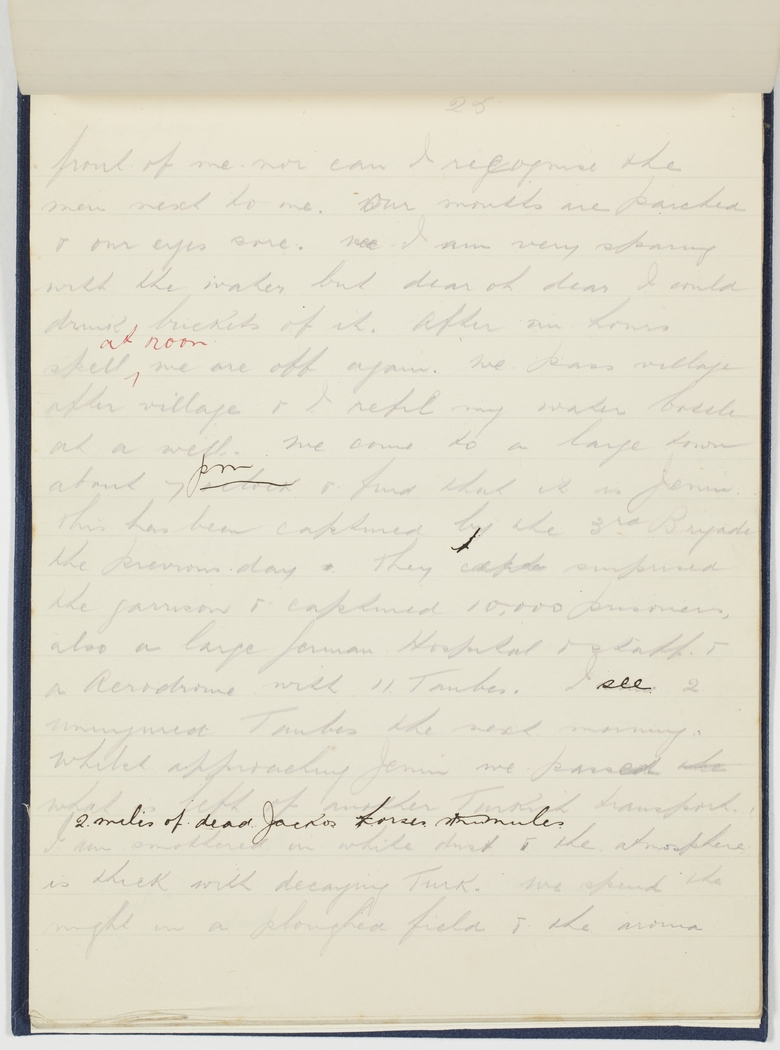 25
front of me nor can I recognise the
men next to me. Our mouths are parched
& our eyes sore. I am very sparing
with the water but dear oh dear I could
drink buckets of it. After hours
at noon
spell, we are off again. We pass village
after village & I refil my water bottle
at a well. We come to a large town
pm
about 7 o'clock & find that it is Jenin.
This has been captured by the 3rd Brigade
the previous day. They surprised
the garrison & captured 10,000 prisoners,
also a large German Hospital & staff. &
a Aerodrome with 11 Taubes. I see 2
uninjured Taubes the next morning.
Whilst approaching Jenin we passed the
what is left of another Turkish transport.
2 miles of dead Jackos Horses & mules
I am smothered in white dust & the atmosphere
is thick with decaying Turk. We spend the
night in a ploughed field & the aroma